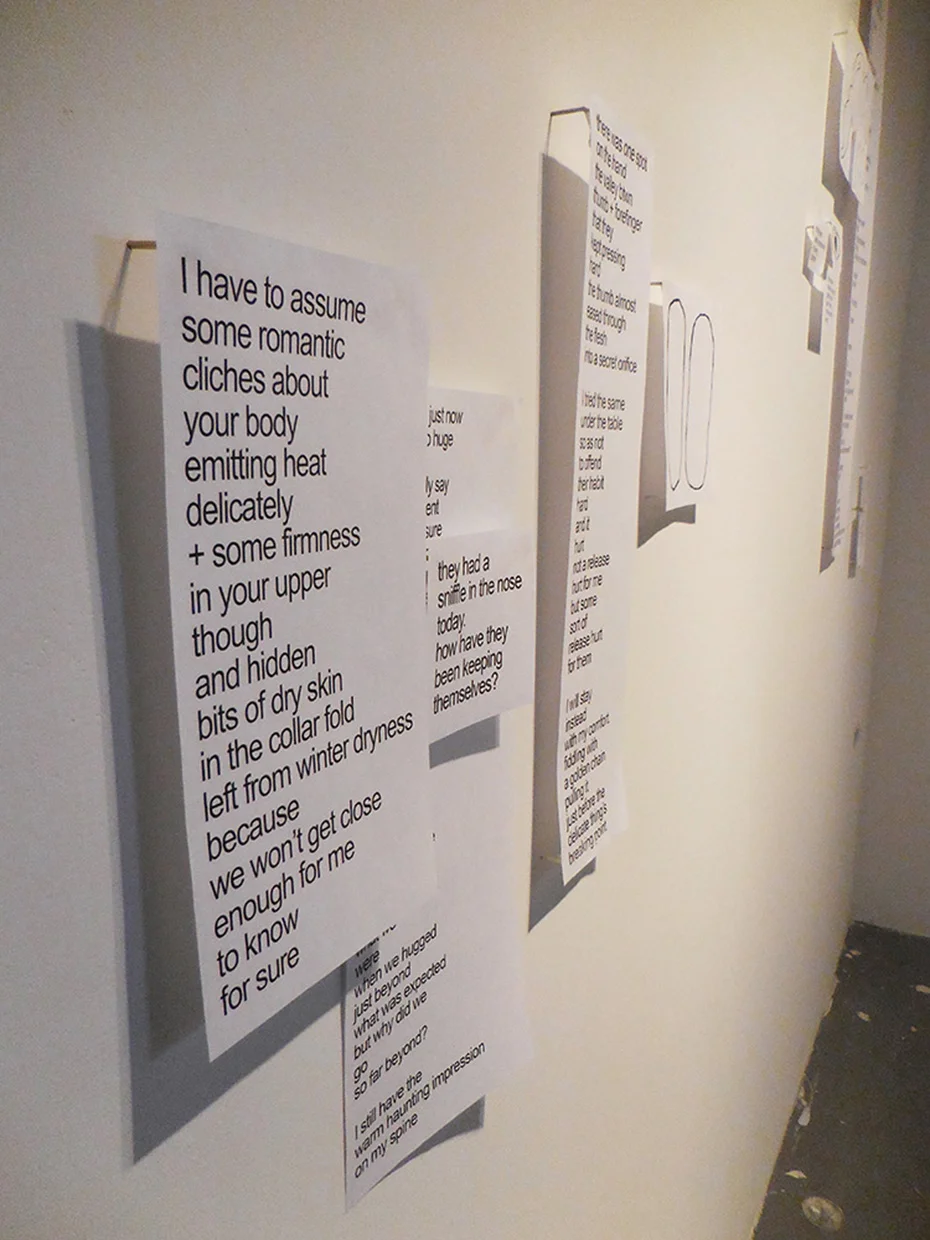 I have to assume
some romantic
cliches about
your body
emitting heat
delicately
+ some firmness
in your upper
though
and hidden
bits of dry skin
in the collar fold
left from winter dryness
because
we won't get close
enough for me
to know
for sure
just now
huge
say
they had a
sniffle in the nose
today.
how have they
been keeping
themselves?
were
when we hugged
just beyond
what was expected
but why did we
go
so far beyond?
I still have the
warm haunting impression
on my spine
there was one spot
on the hand
the valley btwn
thumb + forefinger
that they
kept pressing
hard
the thumb almost
eased through
the flesh
into a secret orifice
I tried the same
under the table
so as not
to offend
their habit
hard
and it
hurt
not a release
hurt for me
but some
sort of
release hurt
for them
I will stay
instead
with my comfort
fiddling with
a golden chain
pulling it
just before the
delicate thing's
breaking point.